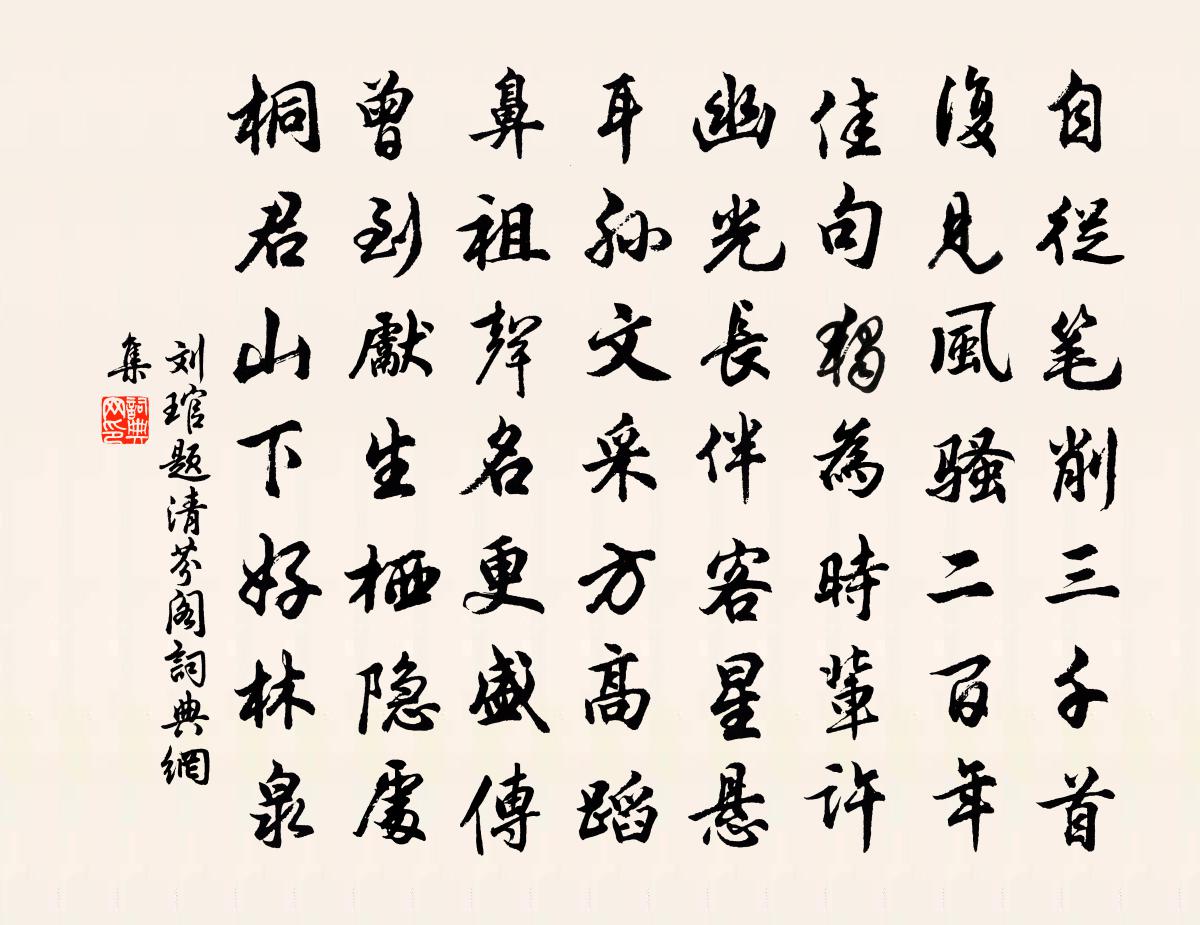 自從笔削三千首
復見風騷二百年
佳句獨為時輩許
幽光長伴客星悬
耳孙文采方高蹈
鼻祖聲名更盛傳
曾到獻生栖隐處
桐君山下好林泉
刘琯题清芬阁詞典網
集
詞典
网印